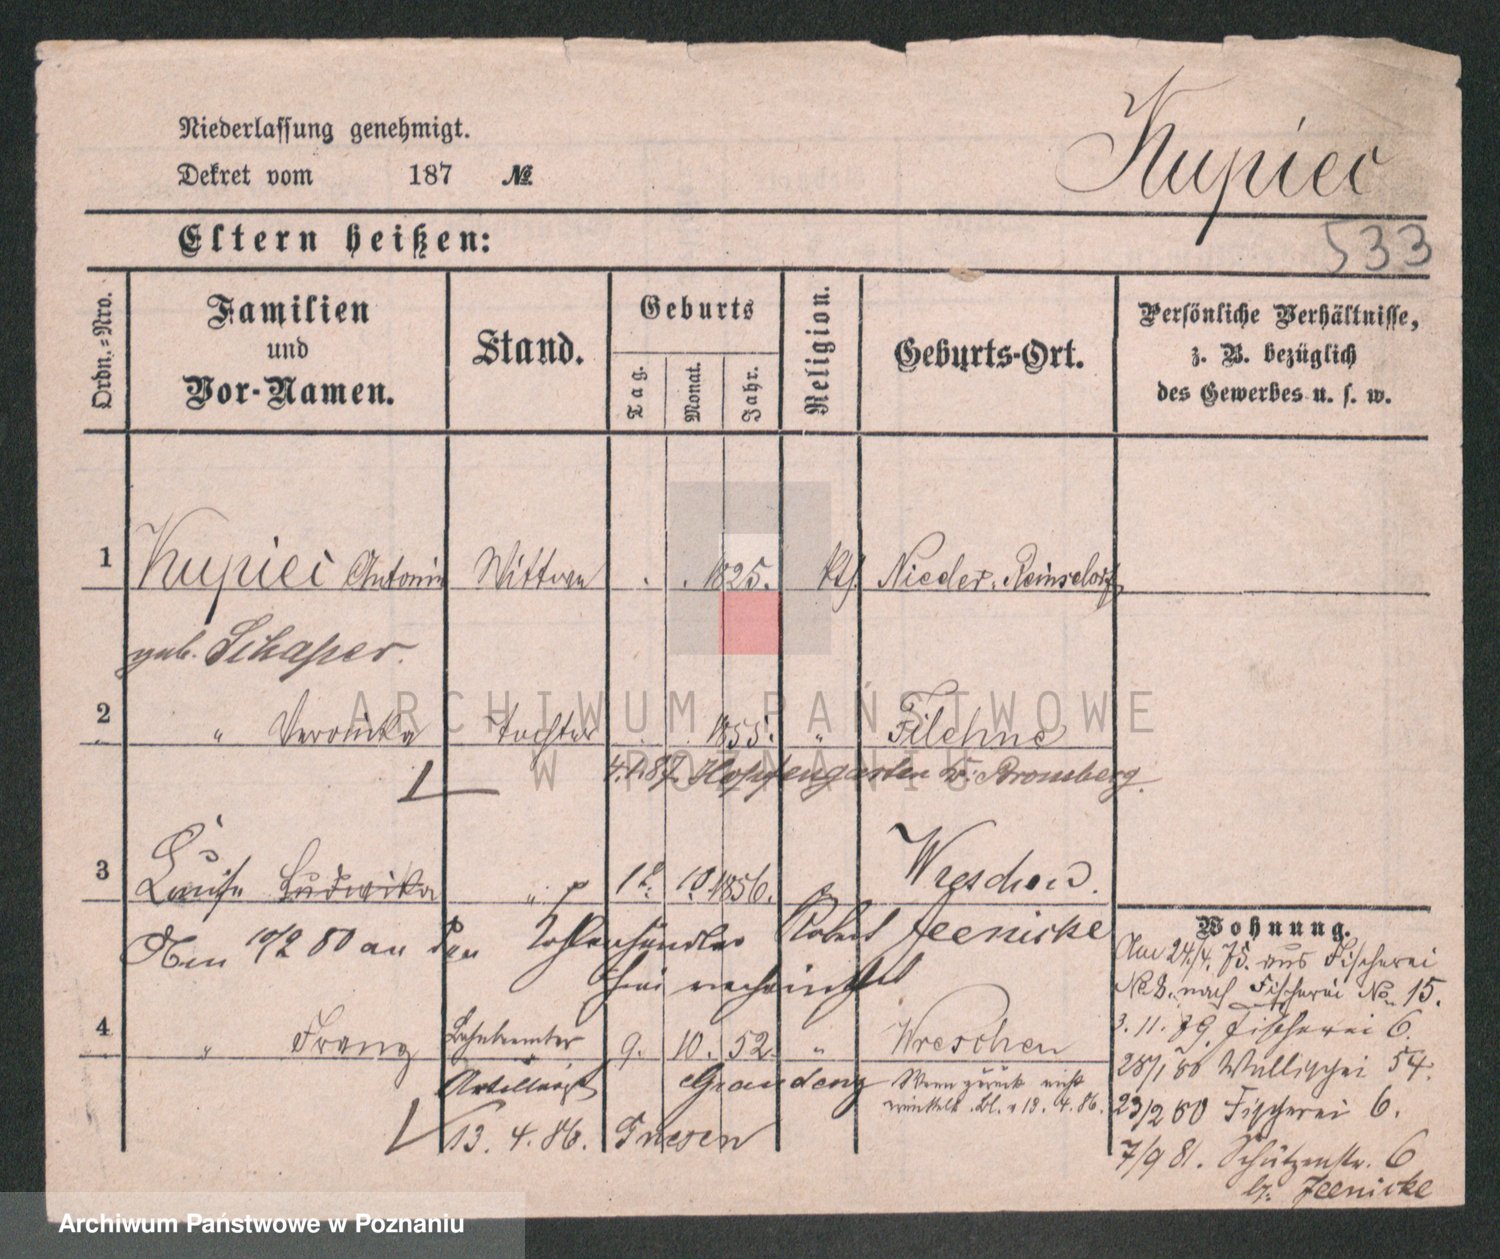 Niederlassung genehmigt.
Dekret vom 187 №
Kupiec
533
Eltern heißen:
Ordn.-Nro.
Familien
und
Vor-Namen.
Stand.
Geburts
Tag.
Monat.
Jahr.
Religion.
Geburts-Ort.
Persönliche Verhältnisse,
z. B. bezüglich
des Gewerbes u. s. w.
1 Kupiec Antonie Wittwe . . 1825. kth. Nieder. Reinsdorf
geb. Schaper.
2 " Veronika Tochter . . 1855. " Filehne
4.1.87. Hopfengarten b. Bromberg.
3 Louise Ludwika " 12. 10. 1856. Wreschen.
Am 10/2 80 an den Kohlenhändler Robert Jeenicke
verheirathet
4 " Franz 9. 10. 52. " Wreschen
Artillerist Graudenz
13. 4. 86. Gnesen
Wohnung.
Am 24/4. 75. aus Fischerei
No 8. nach Fischerei No 15.
3. 11. 79. Fischerei 6.
28/1 80 Wallischei 54.
23/2 80 Fischerei 6.
7/9 81. Schützenstr. 6
b. Jeenicke
ARCHIWUM PAŃSTWOWE
W POZNANIU
Archiwum Państwowe w Poznaniu